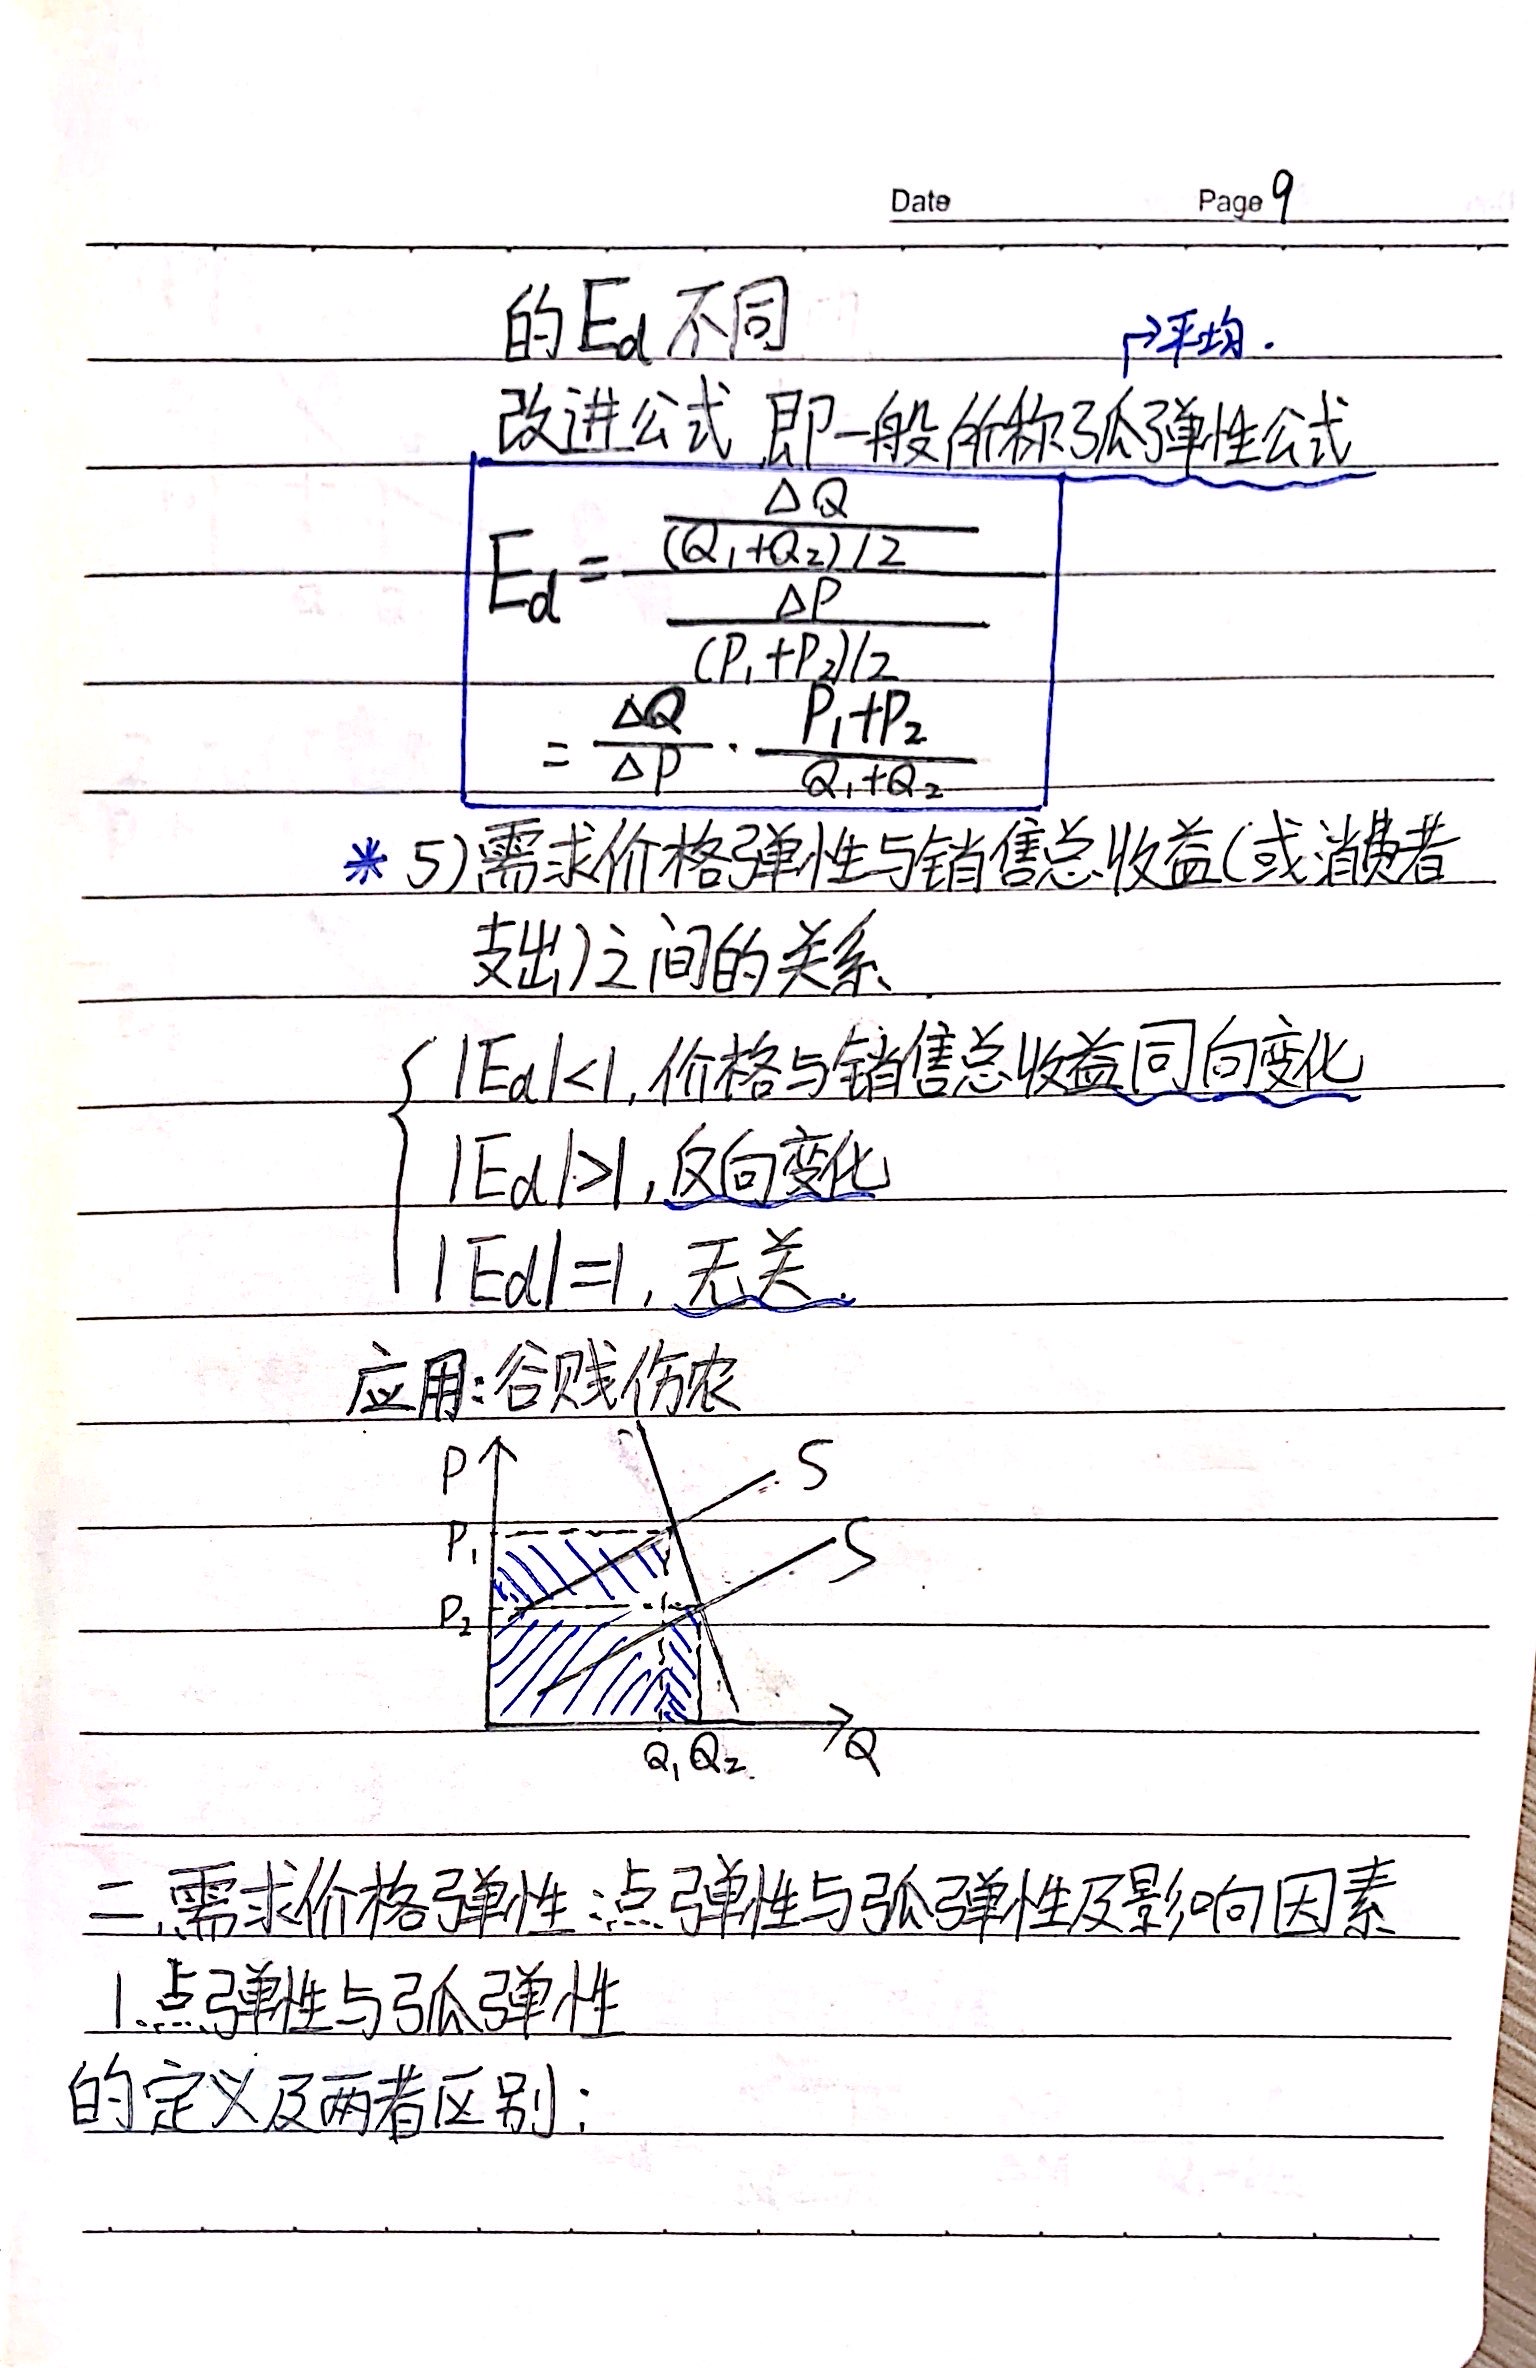 Date Page 9
的Ed不同
→平均.
改进公式 即一般所称弧弹性公式
Ed = (ΔQ / ((Q₁+Q₂)/2)) / (ΔP / ((P₁+P₂)/2))
= ΔQ/ΔP · (P₁+P₂)/(Q₁+Q₂)
* 5)需求价格弹性与销售总收益(或消费者
支出)之间的关系
|Ed|<1,价格与销售总收益同向变化
|Ed|>1,反向变化
|Ed|=1,无关.
应用:谷贱伤农
P
S
P₁
S
P₂
Q₁ Q₂ Q
二.需求价格弹性:点弹性与弧弹性及影响因素
1.点弹性与弧弹性
的定义及两者区别: